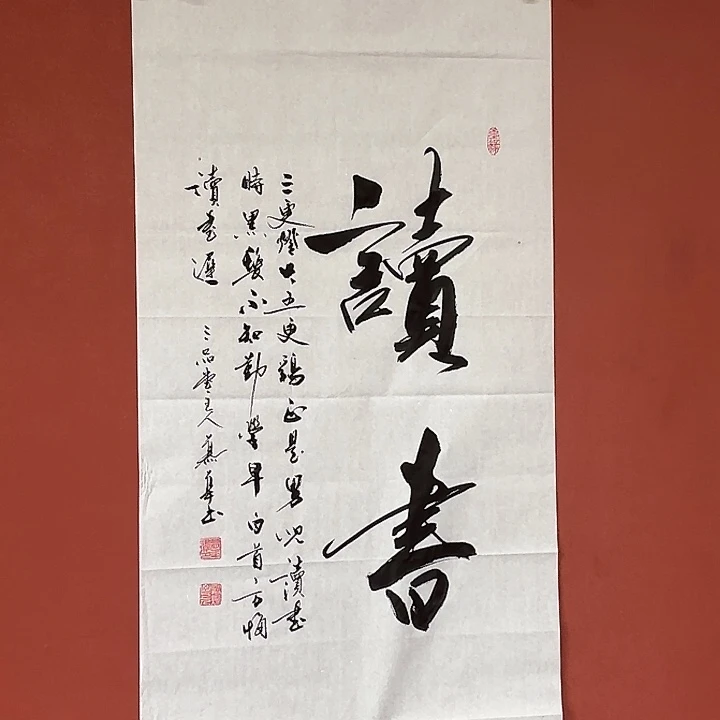 讀書
三更燈火五更鷄正是男兒讀書
時黑髮不知勤學早白首方悔
讀書遲
三品堂主人